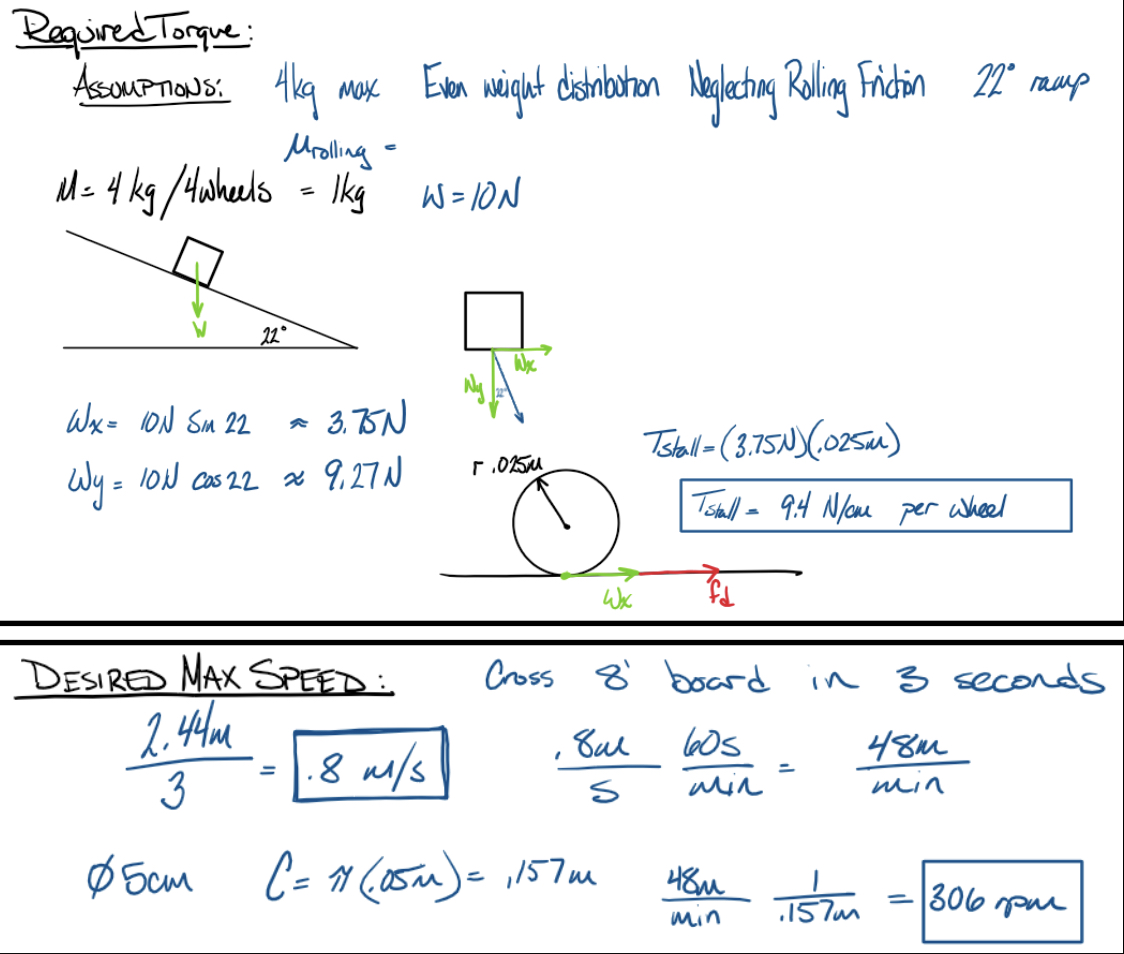 Required Torque:
ASSUMPTIONS: 4kg max Even weight distribution Neglecting Rolling Friction 22° ramp
μrolling =
M = 4 kg / 4 wheels = 1kg W = 10N
W
22°
Wx
Wy
22°
Wx = 10N Sin 22 ≈ 3.75N
Wy = 10N cos 22 ≈ 9.27N
r .025m
Tstall = (3.75N)(.025m)
Tstall = 9.4 N/cm per wheel
Wx
fd
DESIRED MAX SPEED: Cross 8' board in 3 seconds
2.44m / 3 = .8 m/s
.8m / s 60s / min = 48m / min
Ø 5cm C = π (.05m) = .157m
48m / min 1 / .157m = 306 rpm